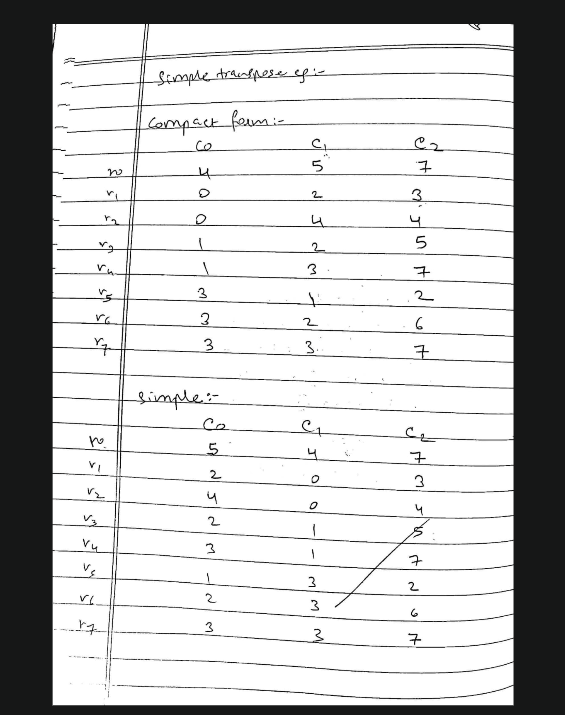 Simple transpose eg:-
Compact form:-
C0 C1 C2
r0 4 5 7
r1 0 2 3
r2 0 4 4
r3 1 2 5
r4 1 3 7
r5 3 1 2
r6 3 2 6
r7 3 3 7
Simple:-
C0 C1 C2
r0 5 4 7
r1 2 0 3
r2 4 0 4
r3 2 1 5
r4 3 1 7
r5 1 3 2
r6 2 3 6
r7 3 3 7